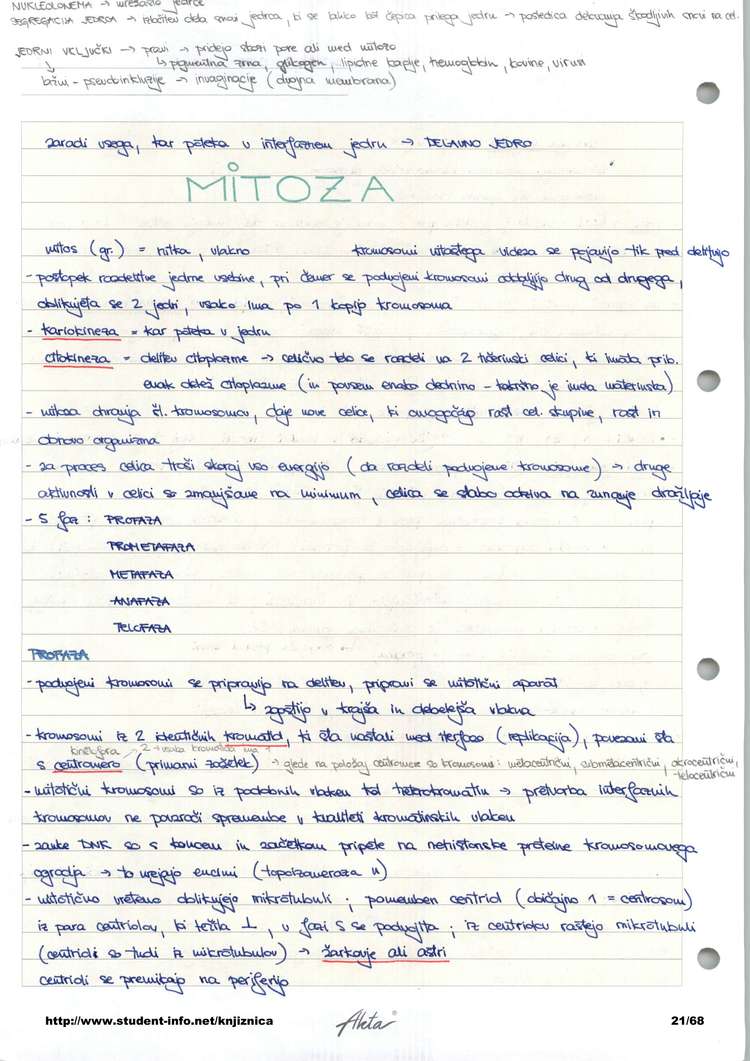 NUKLEOLONEMA → mrežasto jedrce
SEGREGACIJA JEDRCA → izločitev dela snovi jedrca, ki se lahko kot čepica prilega jedru → posledica delovanja škodljivih snovi na cel.
JEDRNI VKLJUČKI → pravi → pridejo skozi pore ali med mitozo
↳ pigmentna zrna, glikogen, lipidne kaplje, hemoglobin, kovine, virusi
lažni - pseudoinkluzije → invaginacije (dvojna membrana)
zaradi vsega, kar poteka v interfaznem jedru → DELAVNO JEDRO
MITOZA
mitos (gr.) = nitka, vlakno kromosomi mitotskega videza se pojavijo tik pred delitvijo
- postopek razdelitve jedrne vsebine, pri čemer se podvojeni kromosomi oddaljijo drug od drugega,
oblikujeta se 2 jedri, vsako ima po 1 kopijo kromosoma
- kariokineza = kar poteka v jedru
citokineza = delitev citoplazme → celično telo se razdeli na 2 hčerinski celici, ki imata prib.
enak delež citoplazme (in povsem enako dednino - takšno je imela materinska)
- mitoza ohranja št. kromosomov, daje nove celice, ki omogočajo rast cel. skupine, rast in
obnovo organizma
- za proces celica troši skoraj vso energijo (da razdeli podvojene kromosome) → druge
aktivnosti v celici so zmanjšane na minimum, celica se slabo odziva na zunanje dražljaje
- 5 faz: PROFAZA
PROMETAFAZA
METAFAZA
ANAFAZA
TELOFAZA
PROFAZA
- podvojeni kromosomi se pripravijo na delitev, pripravi se mitotični aparat
↳ zgostijo v krajša in debelejša vlakna
- kromosomi iz 2 identičnih kromatid, ki sta nastali med interfazo (replikacija), povezani sta
kinetohora 2 → vsaka kromatida ima 1
s centromero (primarni zažetek) → glede na položaj centromere so kromosomi: metacentrični, submetacentrični, akrocentrični,
telocentrični
- mitotični kromosomi so iz podobnih vlaken kot heterokromatin → pretvorba interfaznih
kromosomov ne povzroči spremembe v kvaliteti kromatinskih vlaken
- zanke DNK so s koncem in začetkom pripete na nehistonske proteine kromosomovega
ogrodja → to urejajo encimi (topoizomeraza II)
- mitotično vreteno oblikujejo mikrotubuli; pomemben centriol (običajno 1 = centrosom)
iz para centriolov, ki ležita ⊥, v fazi S se podvojita; iz centriolov raštejo mikrotubuli
(centrioli so tudi iz mikrotubulov) → žarkovje ali astri
centrioli se premikajo na periferijo
http://www.student-info.net/knjiznica
Akta
21/68